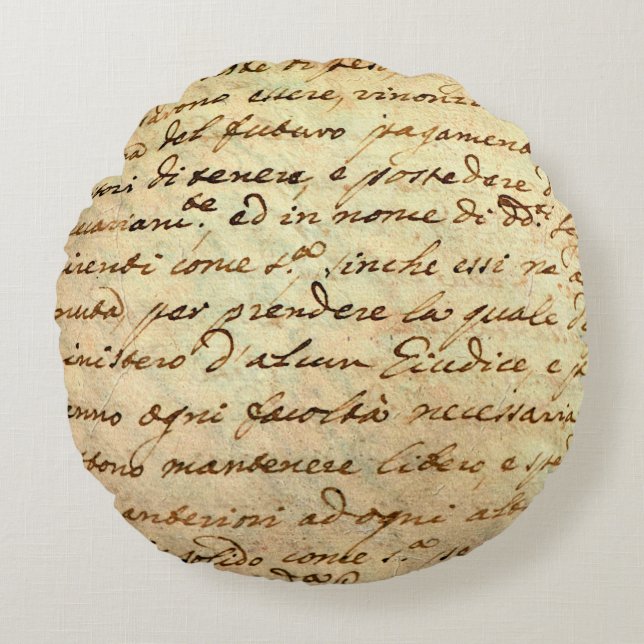 essere, rinonzi
del futuro pagamen
di tenere, e possedere d
uariam.te ed in nome di dd.ti se
irendi come s.a sinche essi ne a
nuta per prendere la quale d
inistero d'alcun Giudice, e p
enno ogni facoltà necessaria
bono mantenere libero, e spe
anteriori ad ogni alt
solido come s.a se